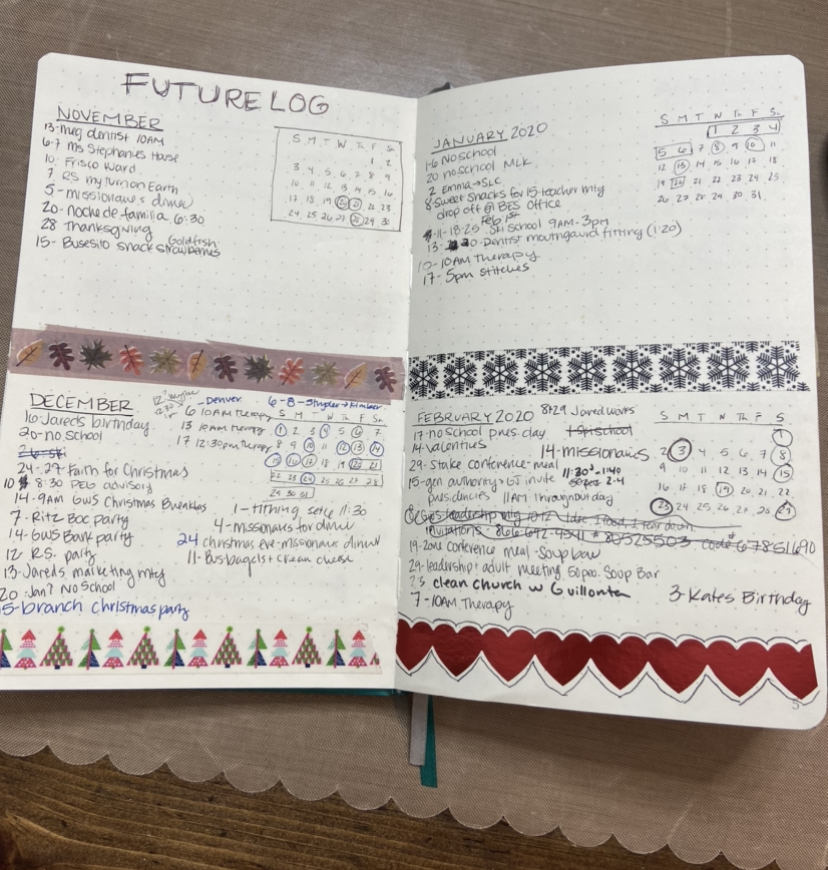 FUTURE LOG
NOVEMBER
13-Meg dentist 10AM
6-7 Ms Stephanies House
10 Frisco Ward
7 RS my turn on Earth
5-missionaries dinner
20-noche de familia 6:30
28 Thanksgiving
15-Busesito snack Goldfish strawberries
S M T W Th F Sa
1 2
3 4 5 6 7 8 9
10 11 12 13 14 15 16
17 18 19 20 21 22 23
24 25 26 27 28 29 30
DECEMBER
16-Jareds birthday
20-no school
24-27 Faith for Christmas
10 8:30 PEG advisory
14-9AM GWS Christmas
7-Ritz Boc party
14-GWS Bank party
12 R.S. party
13-Jareds marketing mtg
20-Jan7 No School
15-branch christmas party
Denver
6 10AM Therapy
13 10AM therapy
17 12:30pm therapy
6-8-Stryder→Kimber
S M T W Th F Sa
1 2 3 4 5 6 7
8 9 10 11 12 13 14
15 16 17 18 19 20 21
22 23 24 25 26 27 28
29 30 31
1-tithing settle 11:30
4-missionaries for dinner
24 christmas eve-missionaries dinner
11-Bus bagels + cream cheese
JANUARY 2020
1-6 No school
20 no school MLK
2 Emma→SLC
8 Sweet Snacks for 15-teacher mtg
drop off @ BES Office
11-18-25 Feb 1st Ski school 9AM-3pm
13- 20-Dentist mouthgaurd fitting (1:20)
10-10AM Therapy
17-5pm stitches
S M T W Th F Sa
1 2 3 4
5 6 7 8 9 10 11
12 13 14 15 16 17 18
19 20 21 22 23 24 25
26 27 28 29 30 31
FEBRUARY 2020 8+29 Jared works
17-no School pres. day
1-Ski school
14-valentines
14-missionaries
29-Stake conference-meal
15-gen authority + GJ invite
presidencies 11AM throughout day
11:30-1:40
2-4
leadership mtg 10-12
tear down
invitations
19-zone conference meal-Soup bar
29-leadership + adult meeting 50 peo. Soup Bar
23 clean church w Guillonta
7-10AM Therapy
3-Kates Birthday
S M T W Th F S
1
2 3 4 5 6 7 8
9 10 11 12 13 14 15
16 17 18 19 20 21 22
23 24 25 26 27 28 29
5